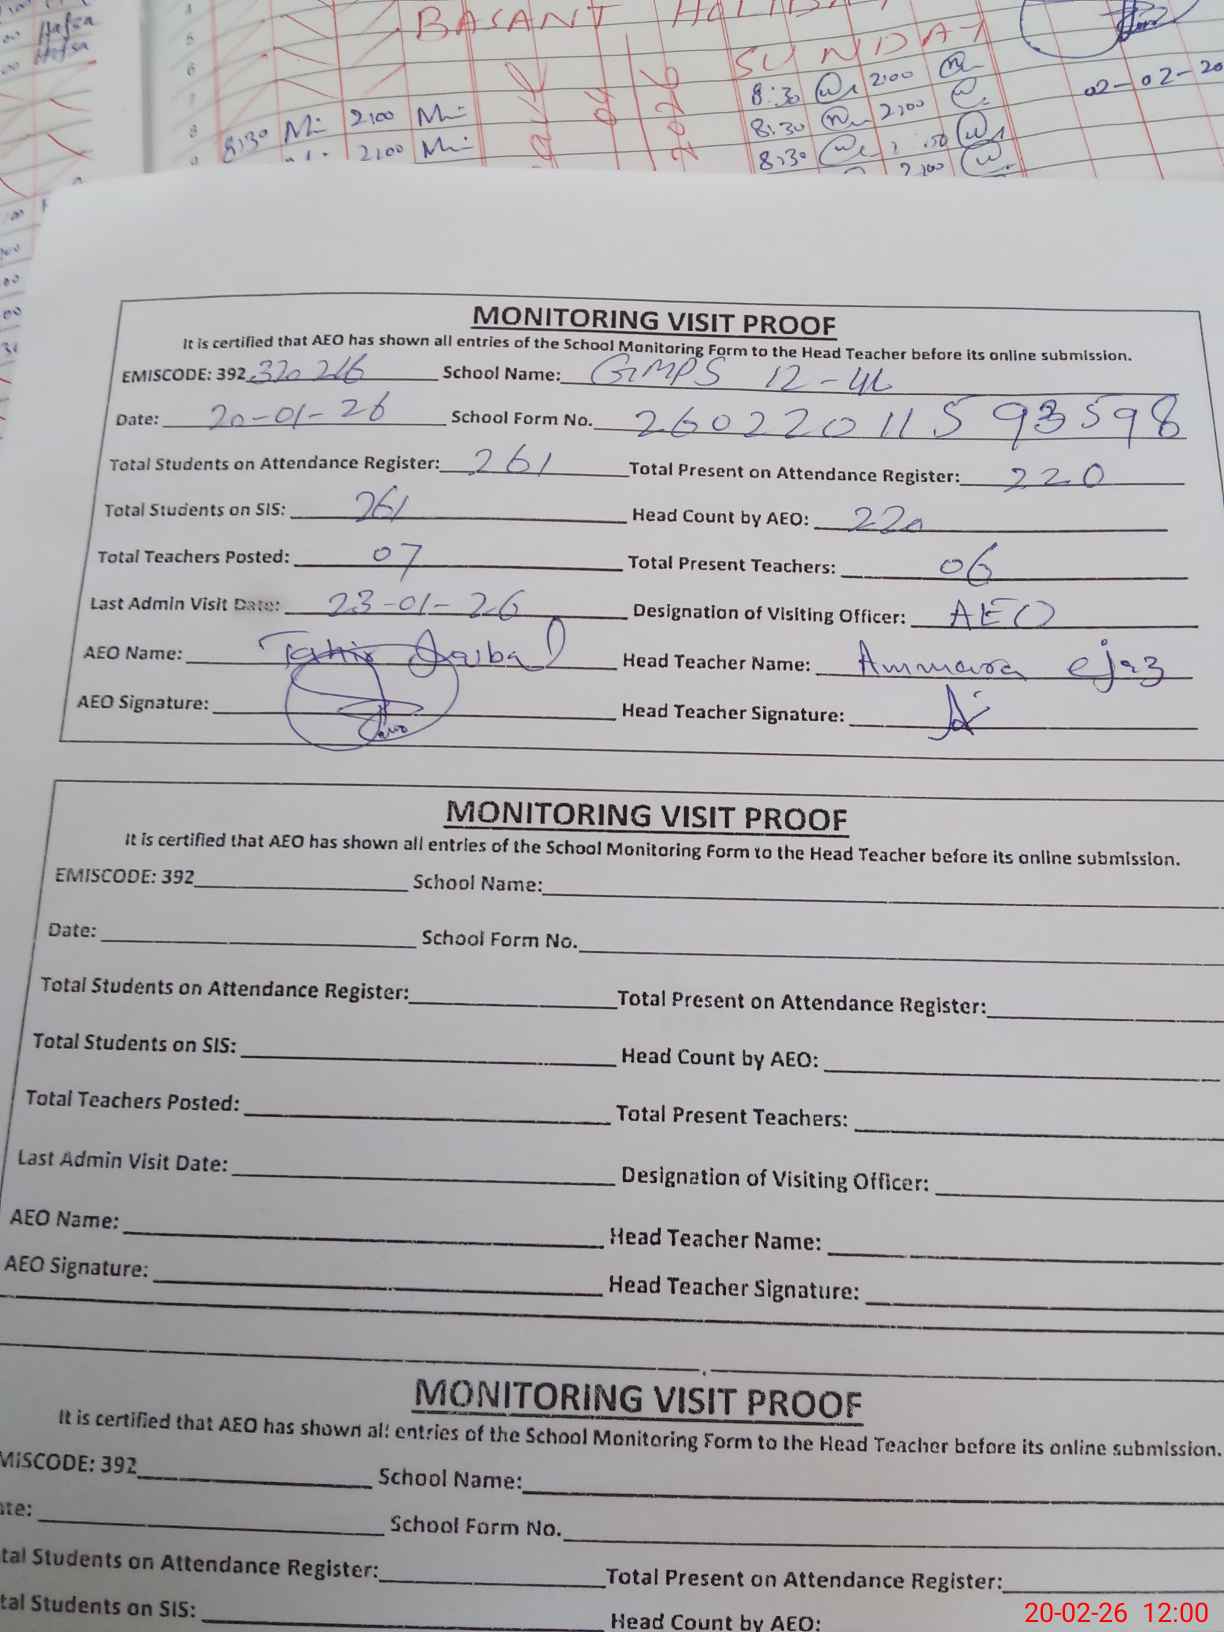 Hafsa
Hafsa
BASANT HOLIDAY
SUNDAY
2026
8:30 2:00
8:30 2:00
8:30 :50
2:00
02-02-20
8:30 Mi 2:00 Mi
2:00 Mi
MONITORING VISIT PROOF
It is certified that AEO has shown all entries of the School Monitoring Form to the Head Teacher before its online submission.
EMISCODE: 392 320216 School Name: GMPS 12-4L
Date: 20-01-26 School Form No. 26022011593598
Total Students on Attendance Register: 261 Total Present on Attendance Register: 220
Total Students on SIS: 261 Head Count by AEO: 220
Total Teachers Posted: 07 Total Present Teachers: 06
Last Admin Visit Date: 23-01-26 Designation of Visiting Officer: AEO
AEO Name: Tahir Iqbal Head Teacher Name: Ammara ejaz
AEO Signature: Head Teacher Signature:
MONITORING VISIT PROOF
It is certified that AEO has shown all entries of the School Monitoring Form to the Head Teacher before its online submission.
EMISCODE: 392 School Name:
Date: School Form No.
Total Students on Attendance Register: Total Present on Attendance Register:
Total Students on SIS: Head Count by AEO:
Total Teachers Posted: Total Present Teachers:
Last Admin Visit Date: Designation of Visiting Officer:
AEO Name: Head Teacher Name:
AEO Signature: Head Teacher Signature:
MONITORING VISIT PROOF
It is certified that AEO has shown all entries of the School Monitoring Form to the Head Teacher before its online submission.
MISCODE: 392 School Name:
ate: School Form No.
tal Students on Attendance Register: Total Present on Attendance Register:
tal Students on SIS: Head Count by AEO:
20-02-26 12:00